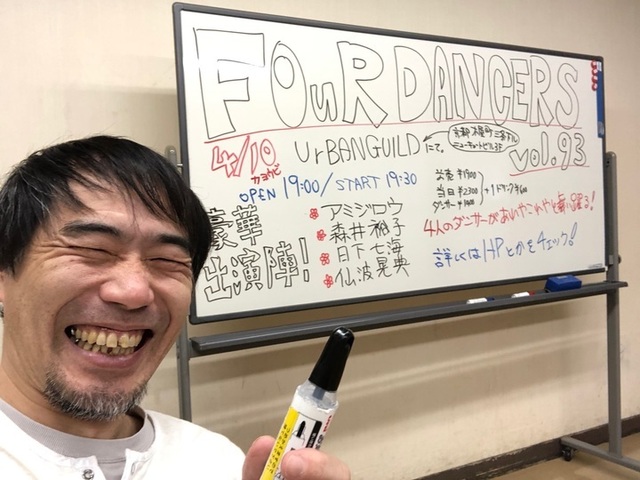 FOuR DANCERS
vol.93
4/10
カヨウビ
UrBANGUILD にて。
京都 木屋町 三条下ル
ニューキョートビル3F
OPEN 19:00/START 19:30
前売 ¥1900
当日 ¥2300
ダンサー ¥1000
+1ドリンク¥600
豪華
出演陣!
アミジロウ
森井 裕子
日下 七海
仙波 晃典
4人のダンサーがあれやこれやと舞い踊る!
詳しくはHPとかをチェック!